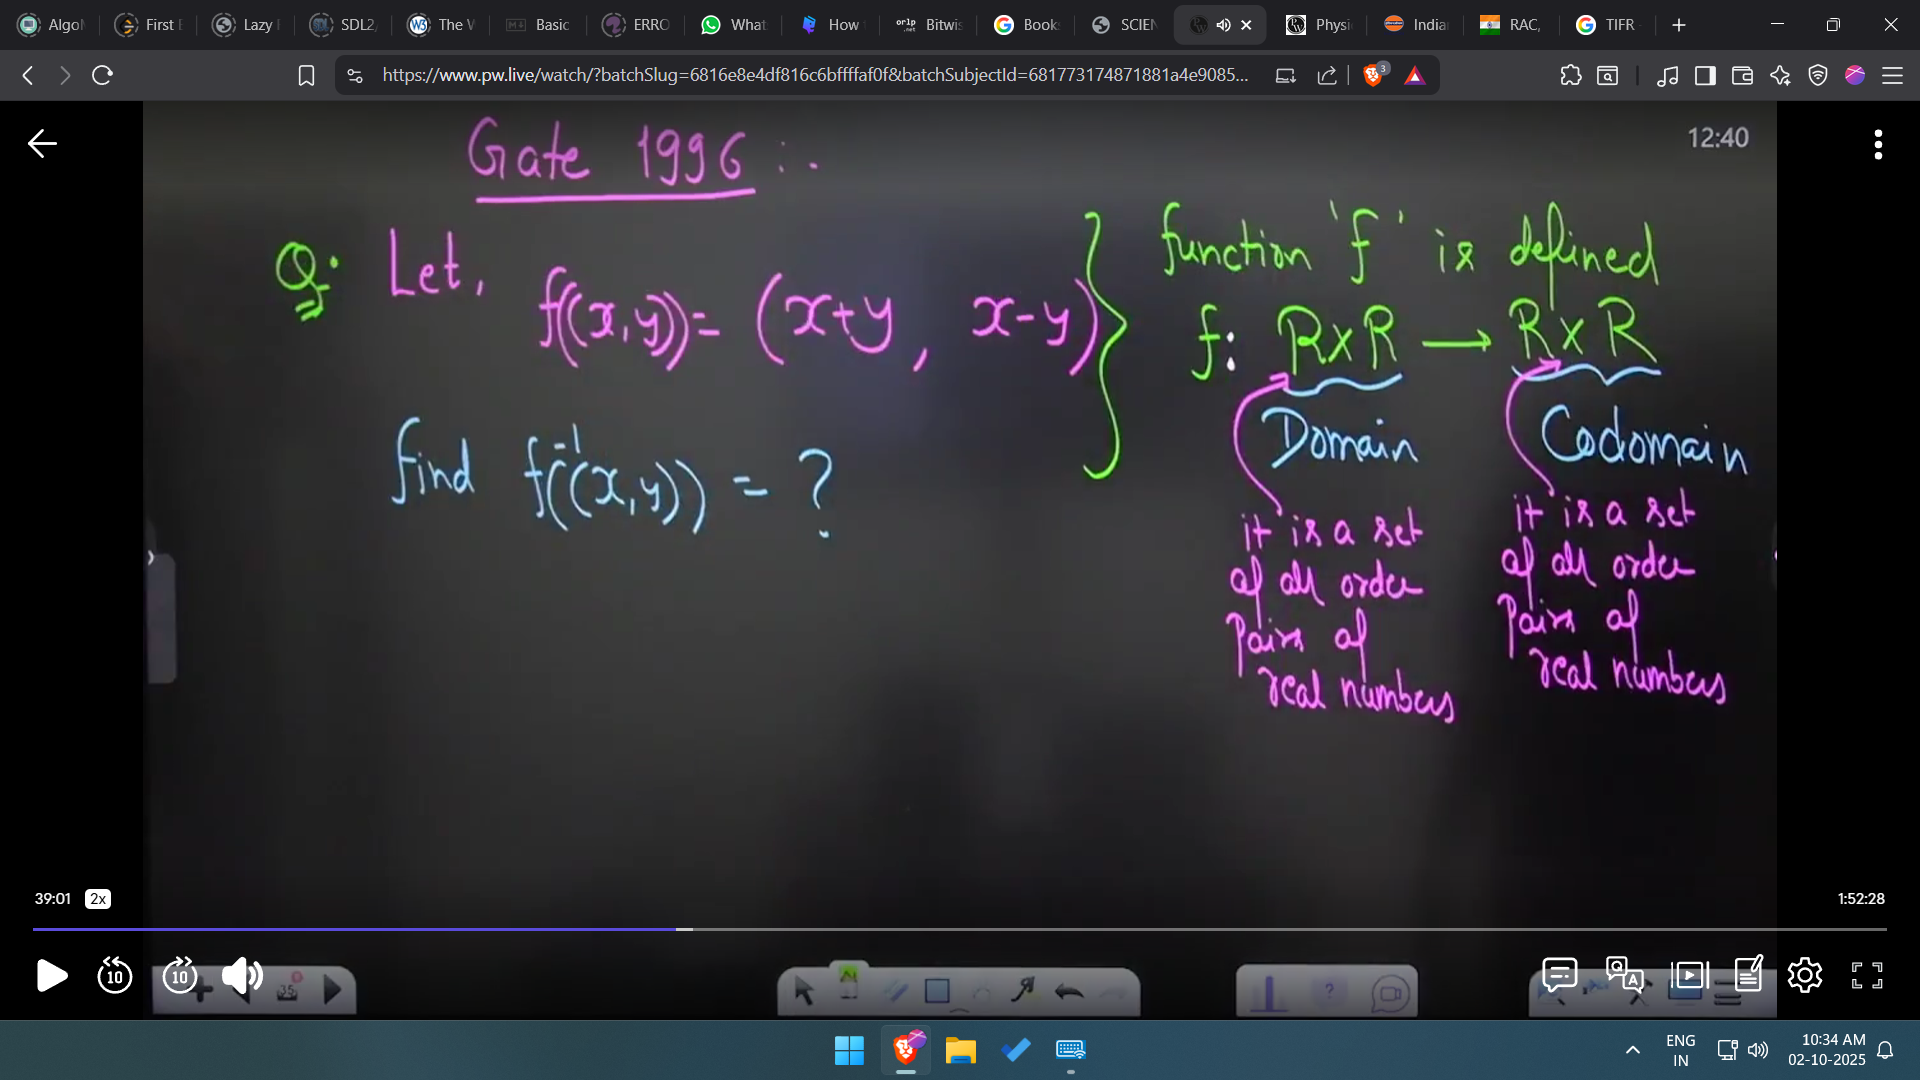 Algo
First E
Lazy
SDL2
The V
Basic
ERRO
What
How
Bitwis
Book
SCIEN
Physi
India
RAC,
TIFR
https://www.pw.live/watch/?batchSlug=6816e8e4df816c6bffffaf0f&batchSubjectId=681773174871881a4e9085...
3
12:40
Gate 1996 :-
Q: Let, f((x,y)) = (x+y, x-y)
find f⁻¹((x,y)) = ?
function 'f' is defined
f: R×R → R×R
Domain
Codomain
it is a set
of all order
Pairs of
real numbers
it is a set
of all order
Pairs of
real numbers
39:01
2x
1:52:28
10
10
35
ENG
IN
10:34 AM
02-10-2025